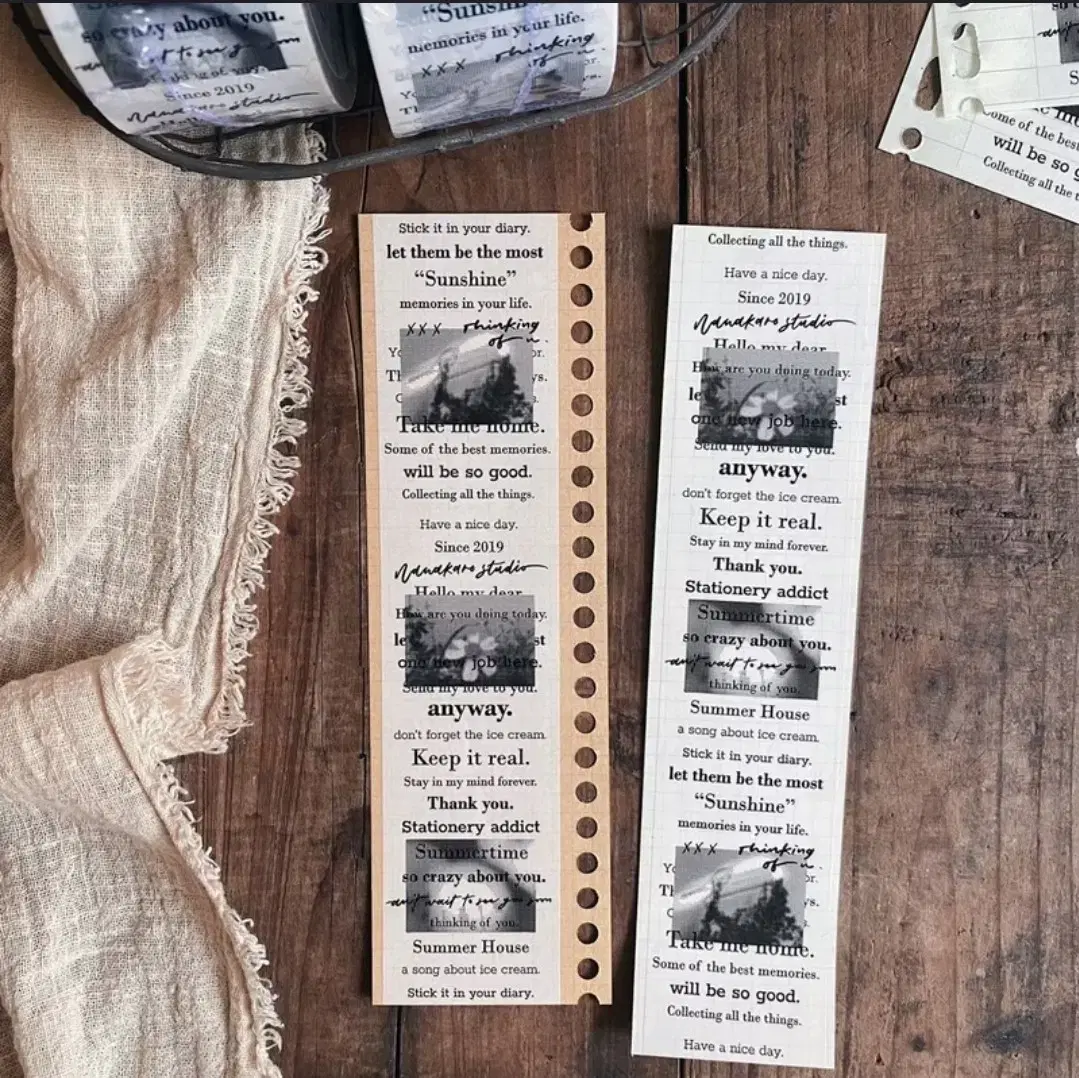 so crazy about you.
Since 2019
"Sunshine"
memories in your life.
XXX thinking
of u.
Some of the best
will be so g
Collecting all the t
Stick it in your diary.
let them be the most
“Sunshine”
memories in your life.
XXX thinking
of u.
Take me home.
Some of the best memories.
will be so good.
Collecting all the things.
Have a nice day.
Since 2019
Nanakaro studio
Hello my dear
How are you doing today.
le st
one new job here.
Send my love to you.
anyway.
don't forget the ice cream.
Keep it real.
Stay in my mind forever.
Thank you.
Stationery addict
Summertime
so crazy about you.
can't wait to see you soon
thinking of you.
Summer House
a song about ice cream.
Stick it in your diary.
Collecting all the things.
Have a nice day.
Since 2019
Nanakaro studio
Hello my dear
How are you doing today.
le st
one new job here.
Send my love to you.
anyway.
don't forget the ice cream.
Keep it real.
Stay in my mind forever.
Thank you.
Stationery addict
Summertime
so crazy about you.
can't wait to see you soon
thinking of you.
Summer House
a song about ice cream.
Stick it in your diary.
let them be the most
“Sunshine”
memories in your life.
XXX thinking
of u.
Take me home.
Some of the best memories.
will be so good.
Collecting all the things.
Have a nice day.